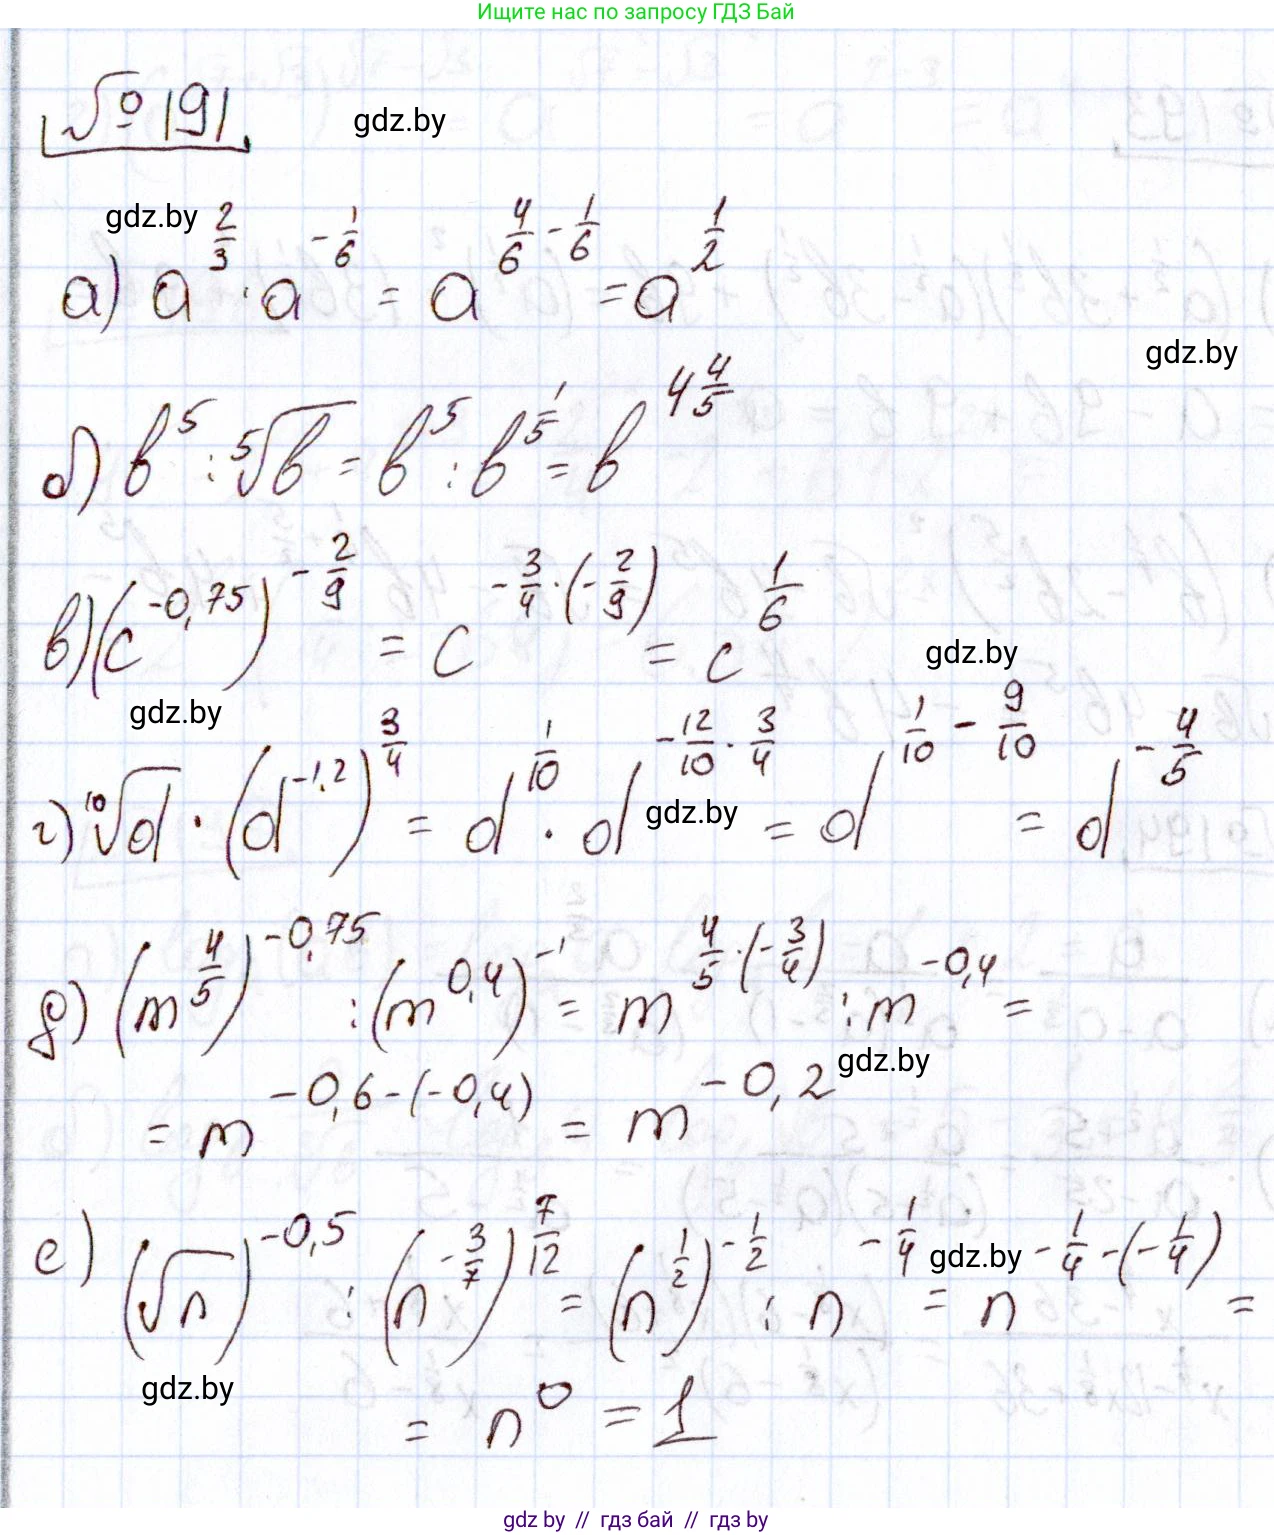 Ищите нас по запросу ГДЗ Бай
№ 191
gdz.by
gdz.by
а) a^{2/3} · a^{-1/6} = a^{4/6 - 1/6} = a^{1/2}
gdz.by
б) b^5 : ⁵√b = b^5 : b^{1/5} = b^{4 4/5}
в) (c^{-0,75})^{-2/9} = c^{-3/4 · (-2/9)} = c^{1/6}
gdz.by
gdz.by
г) ¹⁰√d · (d^{-1,2})^{3/4} = d^{1/10} · d^{-12/10 · 3/4} = d^{1/10 - 9/10} = d^{-4/5}
gdz.by
д) (m^{4/5})^{-0,75} : (m^{0,4})^{-1} = m^{4/5 · (-3/4)} : m^{-0,4} =
gdz.by
= m^{-0,6-(-0,4)} = m^{-0,2}
е) (√n)^{-0,5} : (n^{-3/7})^{7/12} = (n^{1/2})^{-1/2} : n^{-1/4} = n^{-1/4-(-1/4)} =
gdz.by
gdz.by
= n^0 = 1
gdz.by // гдз бай // гдз by